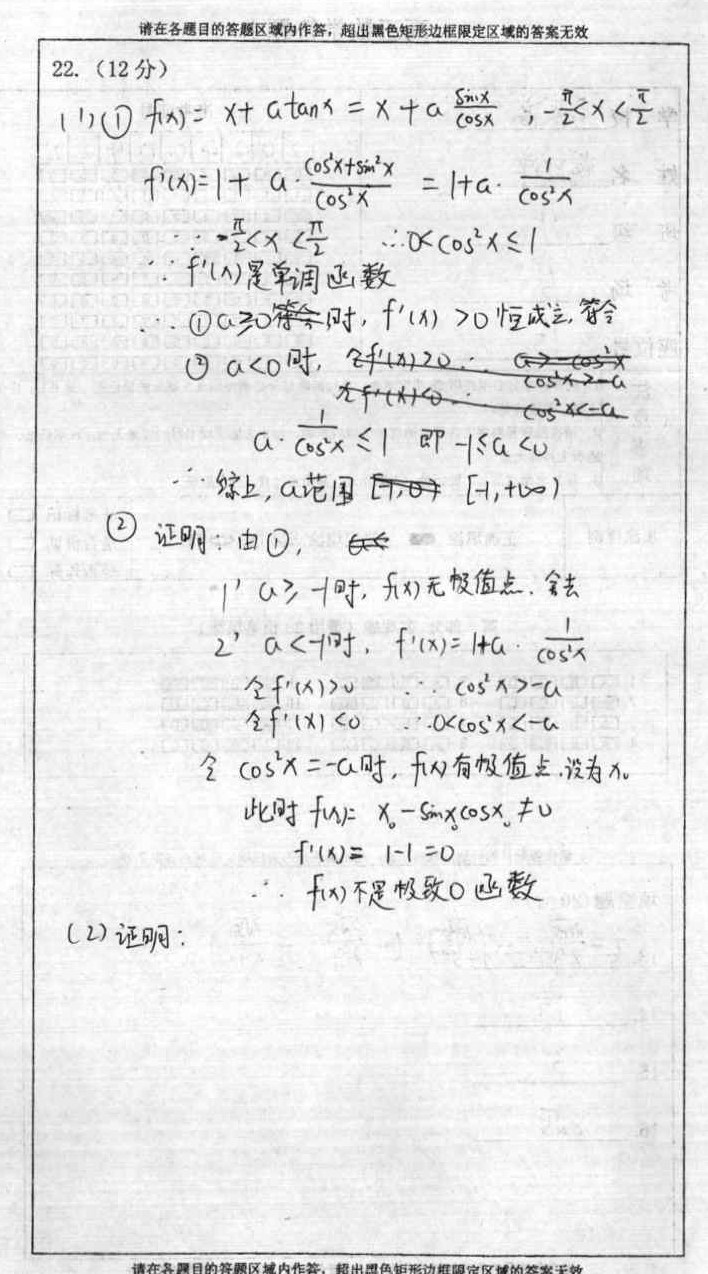 请在各题目的答题区域内作答，超出黑色矩形边框限定区域的答案无效
22.（12分）
(1) ① f(x)= x+ a tanx = x + a sinx/cosx , π/2<x<π/2
f'(x)=1+ a· (cos²x+sin²x)/cos²x = 1+a· 1/cos²x
∵ -π/2<x<π/2 ∴0<cos²x≤1
∴ f'(x)是单调函数
∴ ①a≥0时, f'(x) >0恒成立,符合
② a<0时,
a· 1/cos²x ≤ 1 即 -1≤a<0
∴ 综上, a范围 [-1,+∞)
② 证明: 由①,
1' a≥-1时, f(x)无极值点. 舍去
2' a<-1时, f'(x)=1+a· 1/cos²x
令f'(x)>0 ∴ cos²x>-a
令f'(x)<0 ∴0<cos²x<-a
令 cos²x=-a时, f(x)有极值点,设为x₀
此时 f(x)= x₀-sinx₀cosx₀≠0
f'(x)= 1-1=0
∴ f(x)不是极致0函数
(2)证明:
请在各题目的答题区域内作答，超出黑色矩形边框限定区域的答案无效